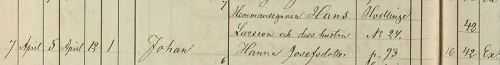 Hemmansegaren Hans Hvellinge
Larsson och dess hustru No 24. 42
7 April 5 April 12 1 Johan Hanna Josefsdotter p. 93 16 42 Ex